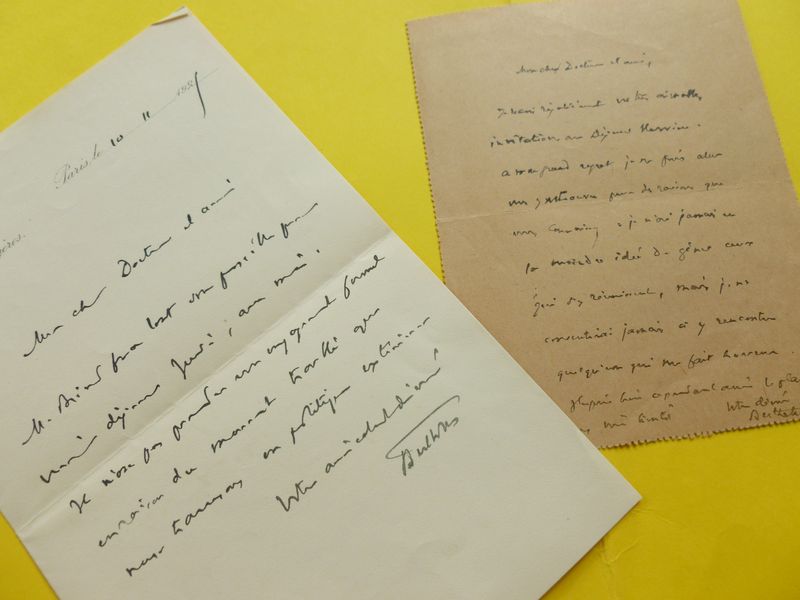 Paris, le 10 11 192
Mon cher Docteur et ami
M. Briand fera tout son possible pour
venir déjeuner Jeudi, avec moi.
Je n'ose pas prendre un engagement formel
en raison du moment troublé que
nous traversons en politique extérieure
Votre amicalement dévoué
Berthelot
Mon cher Docteur et ami,
votre aimable
invitation au Déjeuner
à mon grand regret je ne puis aller
vous y retrouver pour des raisons que
vous ; je n'ai jamais eu
la moindre idée de gêner ceux
qui s'y réunissent, mais je ne
consentirai jamais à y rencontrer
quelqu'un qui me fait horreur.
J'espère
Votre dévoué
Berthelot